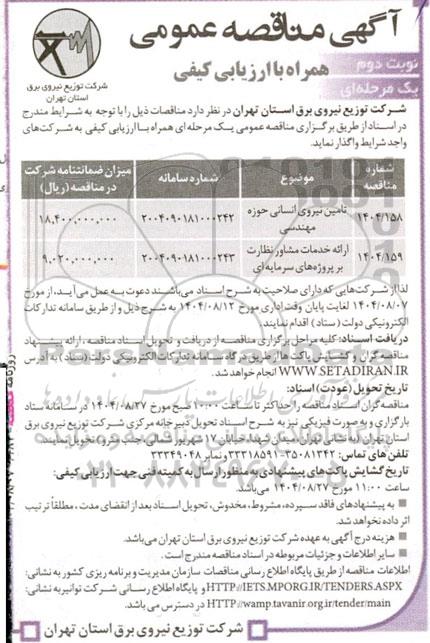 آگهی مناقصه عمومی
همراه با ارزیابی کیفی
نوبت دوم
یک مرحله‌ای
شرکت توزیع نیروی برق
استان تهران
شرکت توزیع نیروی برق استان تهران در نظر دارد مناقصات ذیل را با توجه به شرایط مندرج
در اسناد از طریق برگزاری مناقصه عمومی یک مرحله‌ای همراه با ارزیابی کیفی به شرکت‌های
واجد شرایط واگذار نماید.
شماره مناقصه موضوع شماره سامانه میزان ضمانتنامه شرکت در مناقصه (ریال)
۱۴۰۴/۱۵۸ تامین نیروی انسانی حوزه مهندسی ۲۰۰۴۰۹۰۱۸۱۰۰۰۲۴۲ ۱۸,۴۰۰,۰۰۰,۰۰۰
۱۴۰۴/۱۵۹ ارائه خدمات مشاور نظارت بر پروژه‌های سرمایه‌ای ۲۰۰۴۰۹۰۱۸۱۰۰۰۲۴۳ ۹,۰۲۰,۰۰۰,۰۰۰
لذا از شرکت‌هایی که دارای صلاحیت به شرح اسناد می‌باشند دعوت به عمل می‌آید، از مورخ
۱۴۰۴/۰۸/۰۷ لغایت پایان وقت اداری مورخ ۱۴۰۴/۰۸/۱۲ به شرح ذیل و از طریق سامانه تدارکات
الکترونیکی دولت (ستاد) اقدام نمایند.
دریافت اسناد: کلیه مراحل برگزاری مناقصه از دریافت و تحویل اسناد مناقصه، ارائه پیشنهاد
مناقصه‌گران و گشایش پاکت‌ها از طریق درگاه سامانه تدارکات الکترونیکی دولت (ستاد) به آدرس
WWW.SETADIRAN.IR انجام خواهد شد.
تاریخ تحویل (عودت) اسناد:
مناقصه‌گران اسناد مناقصه را حداکثر تا ساعت ۱۰:۰۰ صبح مورخ ۱۴۰۴/۰۸/۲۷ در سامانه ستاد
بارگزاری و به صورت فیزیکی نیز به شرح اسناد تحویل دبیرخانه مرکزی شرکت توزیع نیروی برق
استان تهران (به نشانی تهران، میدان شهدا، خیابان ۱۷ شهریور شمالی، جنب مترو) تحویل نمایند.
تلفن‌های تماس: ۳۵۰۸۱۳۴۲-۳۳۳۱۸۵۹۱ و نمابر ۳۳۳۴۹۰۴۸
تاریخ گشایش پاکت‌های پیشنهادی به منظور ارسال به کمیته فنی جهت ارزیابی کیفی:
ساعت ۱۱:۰۰ مورخ ۱۴۰۴/۰۸/۲۷ می‌باشد.
■ به پیشنهادهای فاقد سپرده، مشروط، مخدوش، تحویل اسناد بعد از انقضای مدت، مطلقاً ترتیب
اثر داده نخواهد شد.
■ هزینه درج آگهی به عهده شرکت توزیع نیروی برق استان تهران می‌باشد.
■ سایر اطلاعات و جزئیات مربوطه در اسناد مناقصه مندرج است.
اطلاعات مناقصه از طریق پایگاه اطلاع رسانی مناقصات سازمان مدیریت و برنامه ریزی کشور به نشانی:
HTTP://IETS.MPORG.IR/TENDERS.ASPX و پایگاه اطلاع رسانی شرکت توانیر به نشانی:
HTTP://wamp.tavanir.org.ir/tender/main در دسترس می‌باشد.
شرکت توزیع نیروی برق استان تهران